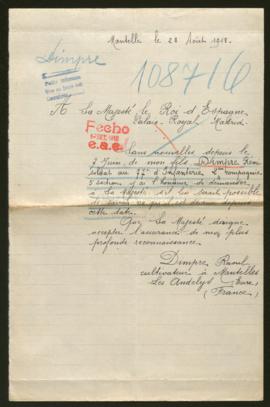 Mantelle le 28 Août 1918.
Dimpre
108716
A Sa Majesté le Roi d'Espagne
Palais Royal Madrid
Fecho
e.a.e.
Sans nouvelles depuis le
2 Juin de mon fils Dimpre
soldat au 77e d'Infanterie compagnie
5 section j'ai l'honneur de demander
à Sa Majesté s'il lui serait possible
de savoir ce qu'il est devenu depuis
cette date.
Que Sa Majesté daigne
accepter l'assurance de mes plus
profonde reconnaissance.
Dimpre Raoul
cultivateur à Mantelles
Les Andelys Eure
(France)